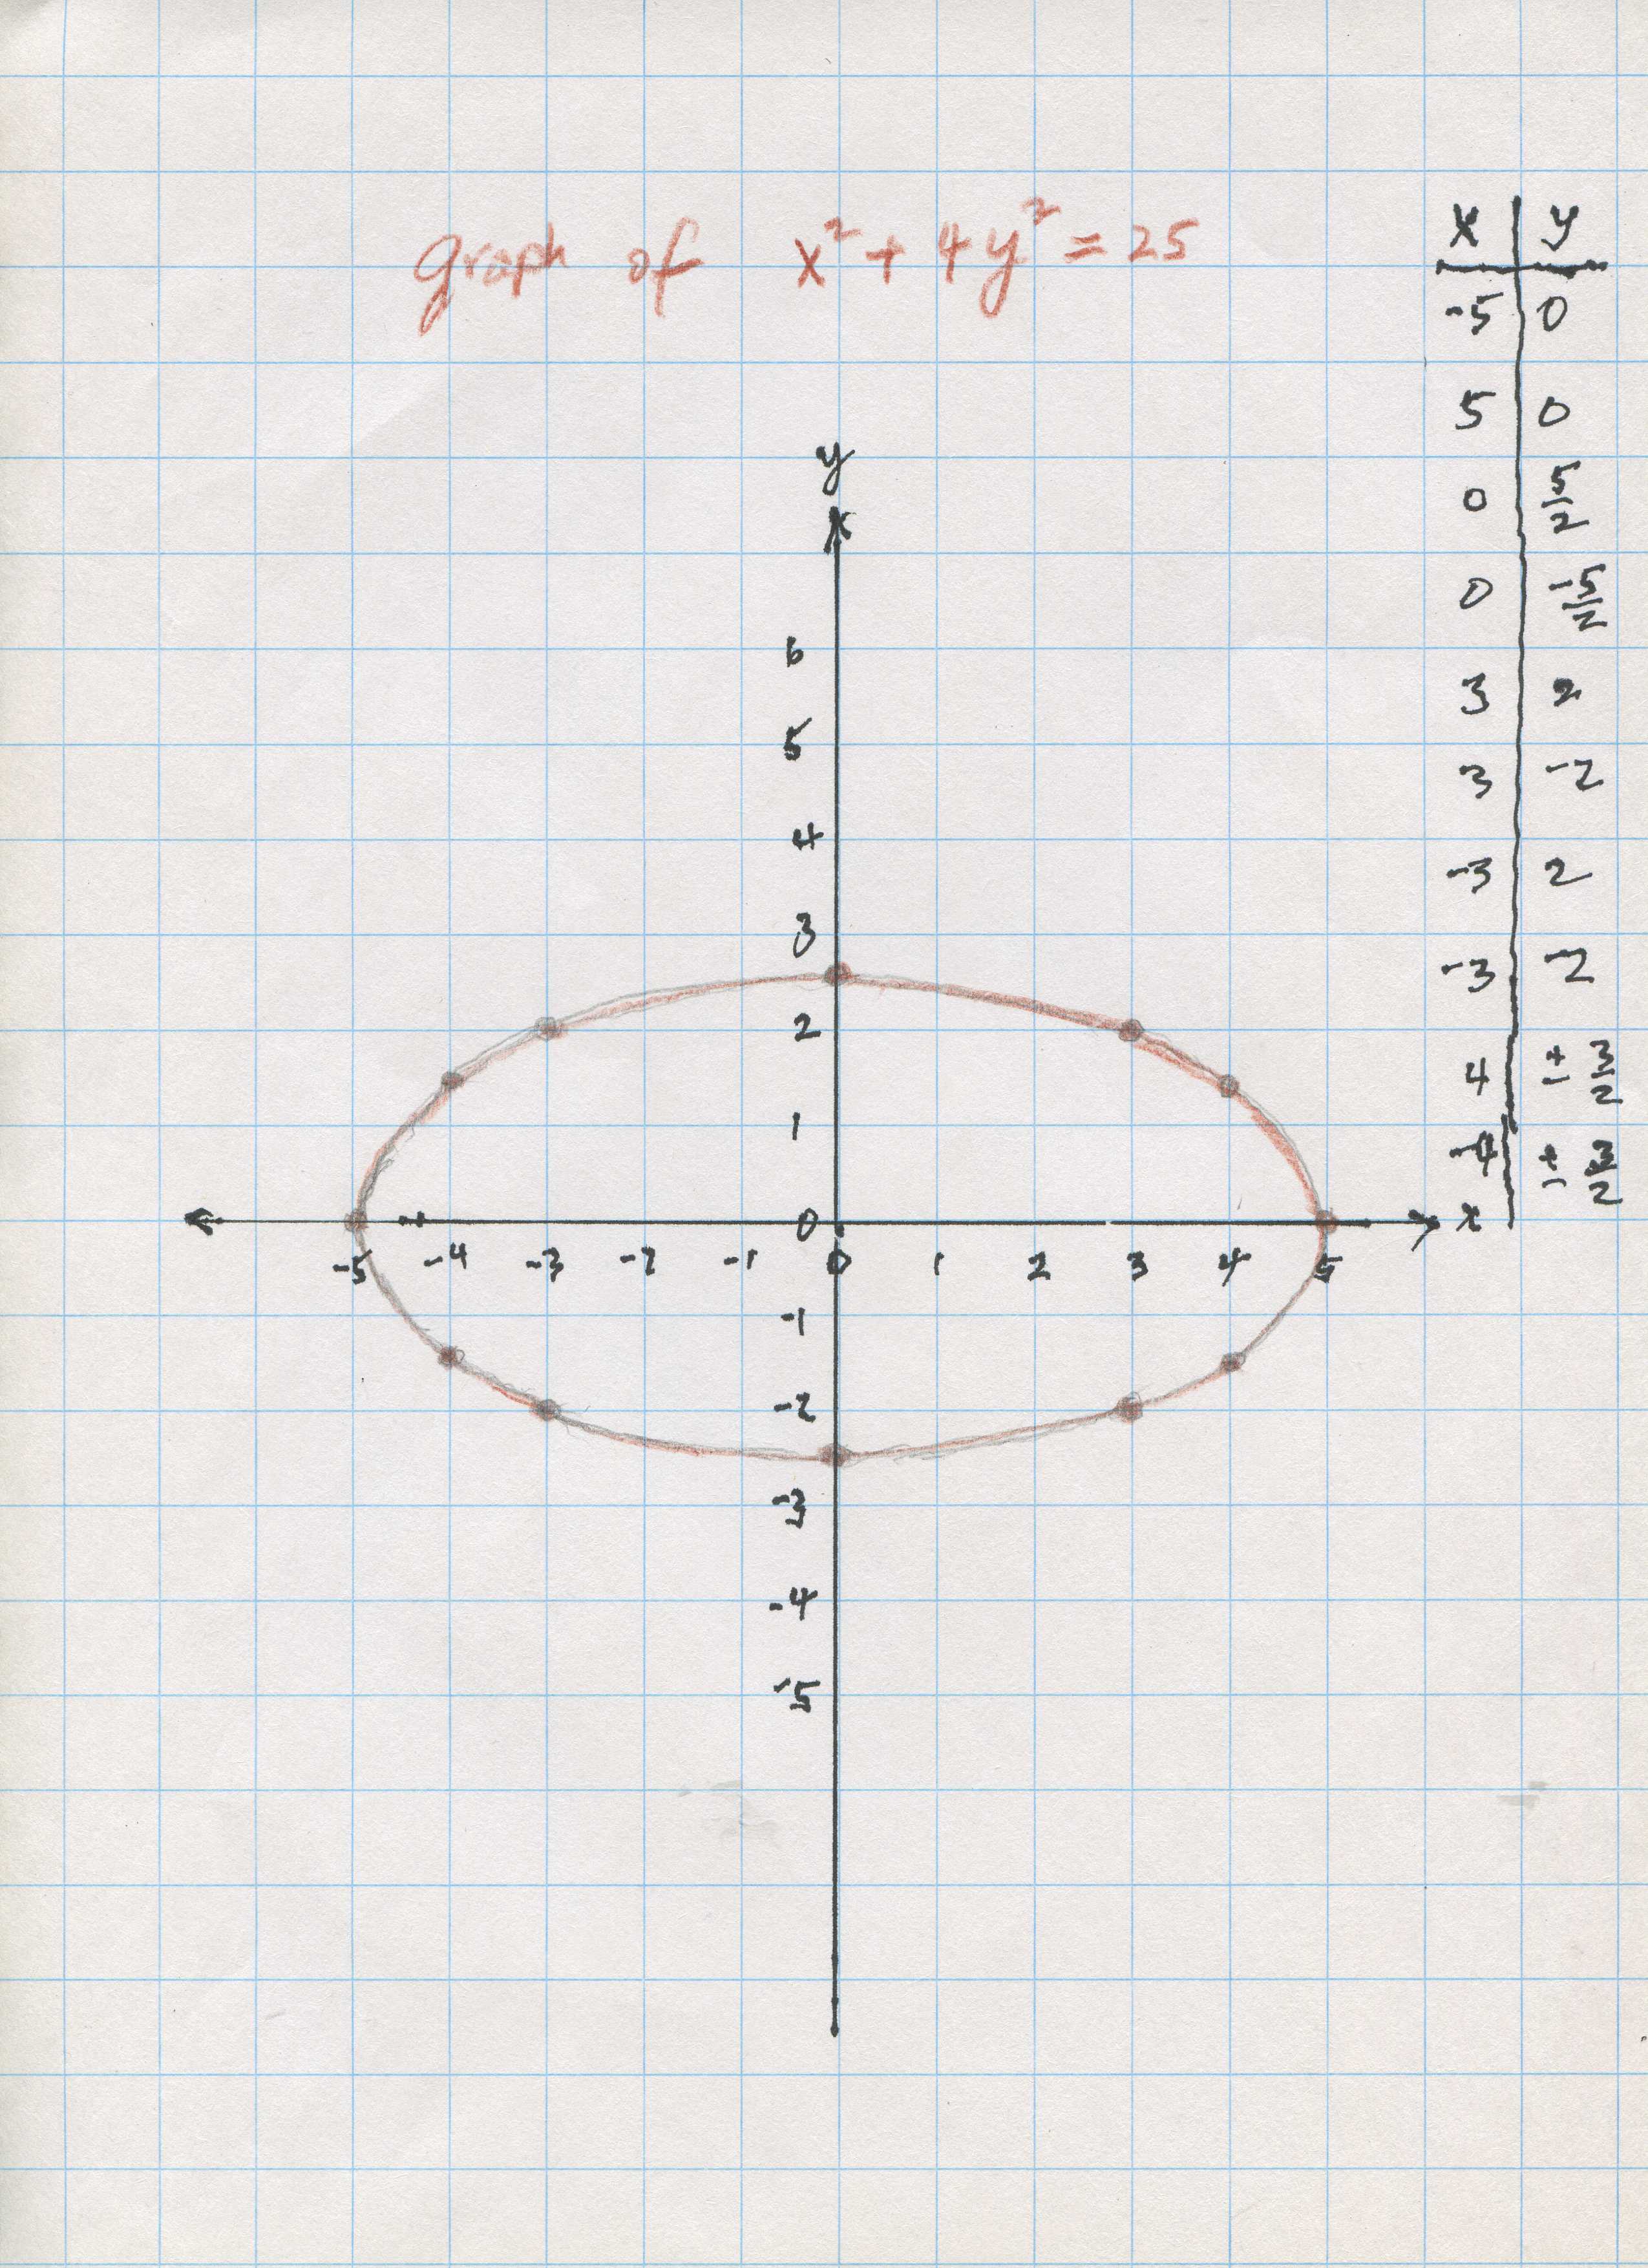 graph of x² + 4y² = 25
x y
-5 0
5 0
0 5/2
0 -5/2
3 2
3 -2
-3 2
-3 -2
4 ± 3/2
-4 ± 3/2
y
6
5
4
3
2
1
0
x
-5 -4 -3 -2 -1 0 1 2 3 4 5
-1
-2
-3
-4
-5